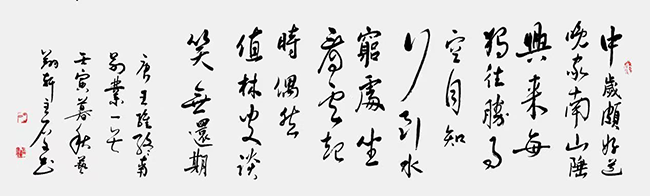 中歲頗好道
晚家南山陲
興來每
獨往勝事
空自知
行到水
窮處坐
看雲起
時偶然
值林叟談
笑無還期
唐王維終南
別業一首
壬寅暮秋藝
翰軒主